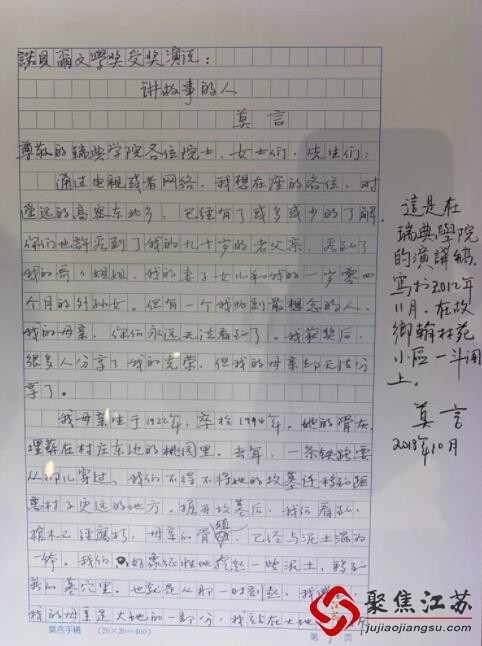 諾貝爾文學奖受奖演说：
讲故事的人
莫言
尊敬的瑞典学院各位院士，女士们，先生们：
通过电视或者网络，我想在座的各位，对
遥远的高密东北乡，已经有了或多或少的了解。
你们也许看到了我的九十岁的老父亲，看到了
我的哥哥姐姐、我的妻子女儿和我的一岁零四
个月的外孙女。但有一个我此刻最想念的人，
我的母亲，你们永远无法看到了。我获奖后，
很多人分享了我的光荣，但我的母亲却无法分
享了。
我母亲生于1922年，卒于1994年。她的骨灰
埋葬在村庄东边的桃园里。去年，一条铁路要
从那儿穿过，我们不得不将她的坟墓迁移到距
离村子更远的地方。掘开坟墓后，我们看到，
棺木已经腐朽，母亲的骨殖，已经与泥土混为
一体。我们只好象征性地挖起一些泥土，移到
新的墓穴里。也就是从那一时刻起，我
我的母亲是大地的一部分，我站在大地
莫言手稿 (20×20=400) 第 页
這是在
瑞典學院
的演講稿，
寫於2012年
11月，在故
鄉翰林苑
小區一斗閣
上。
莫言
2018年10月
聚焦江苏
jujiaojiangsu.com